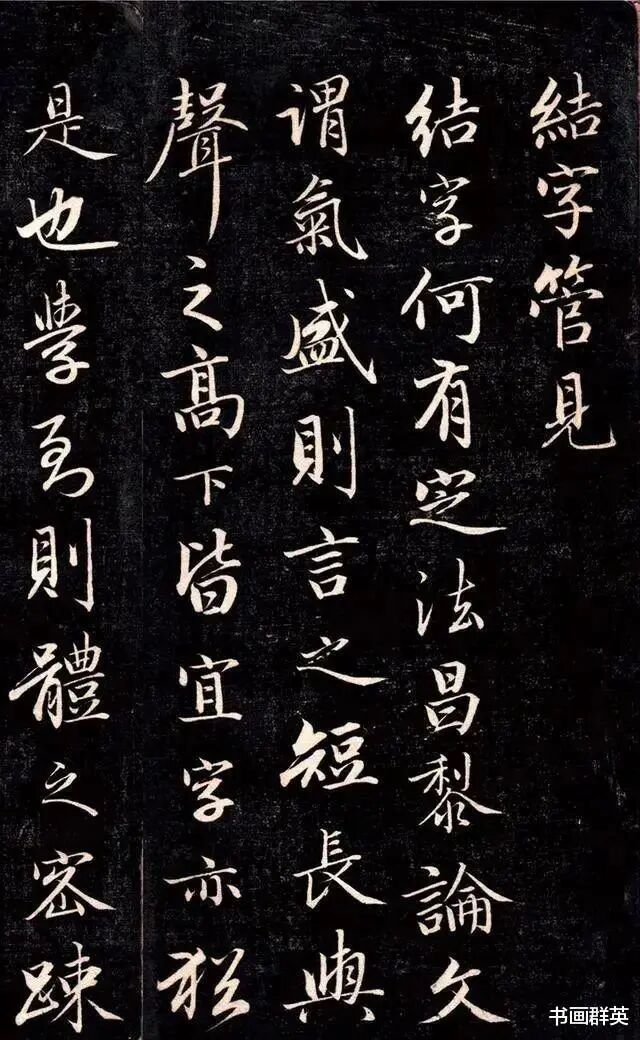 結字管見
結字何有定法昌黎論文
謂氣盛則言之短長與
聲之高下皆宜字亦猶
是也學到則體之密疎
书画群英